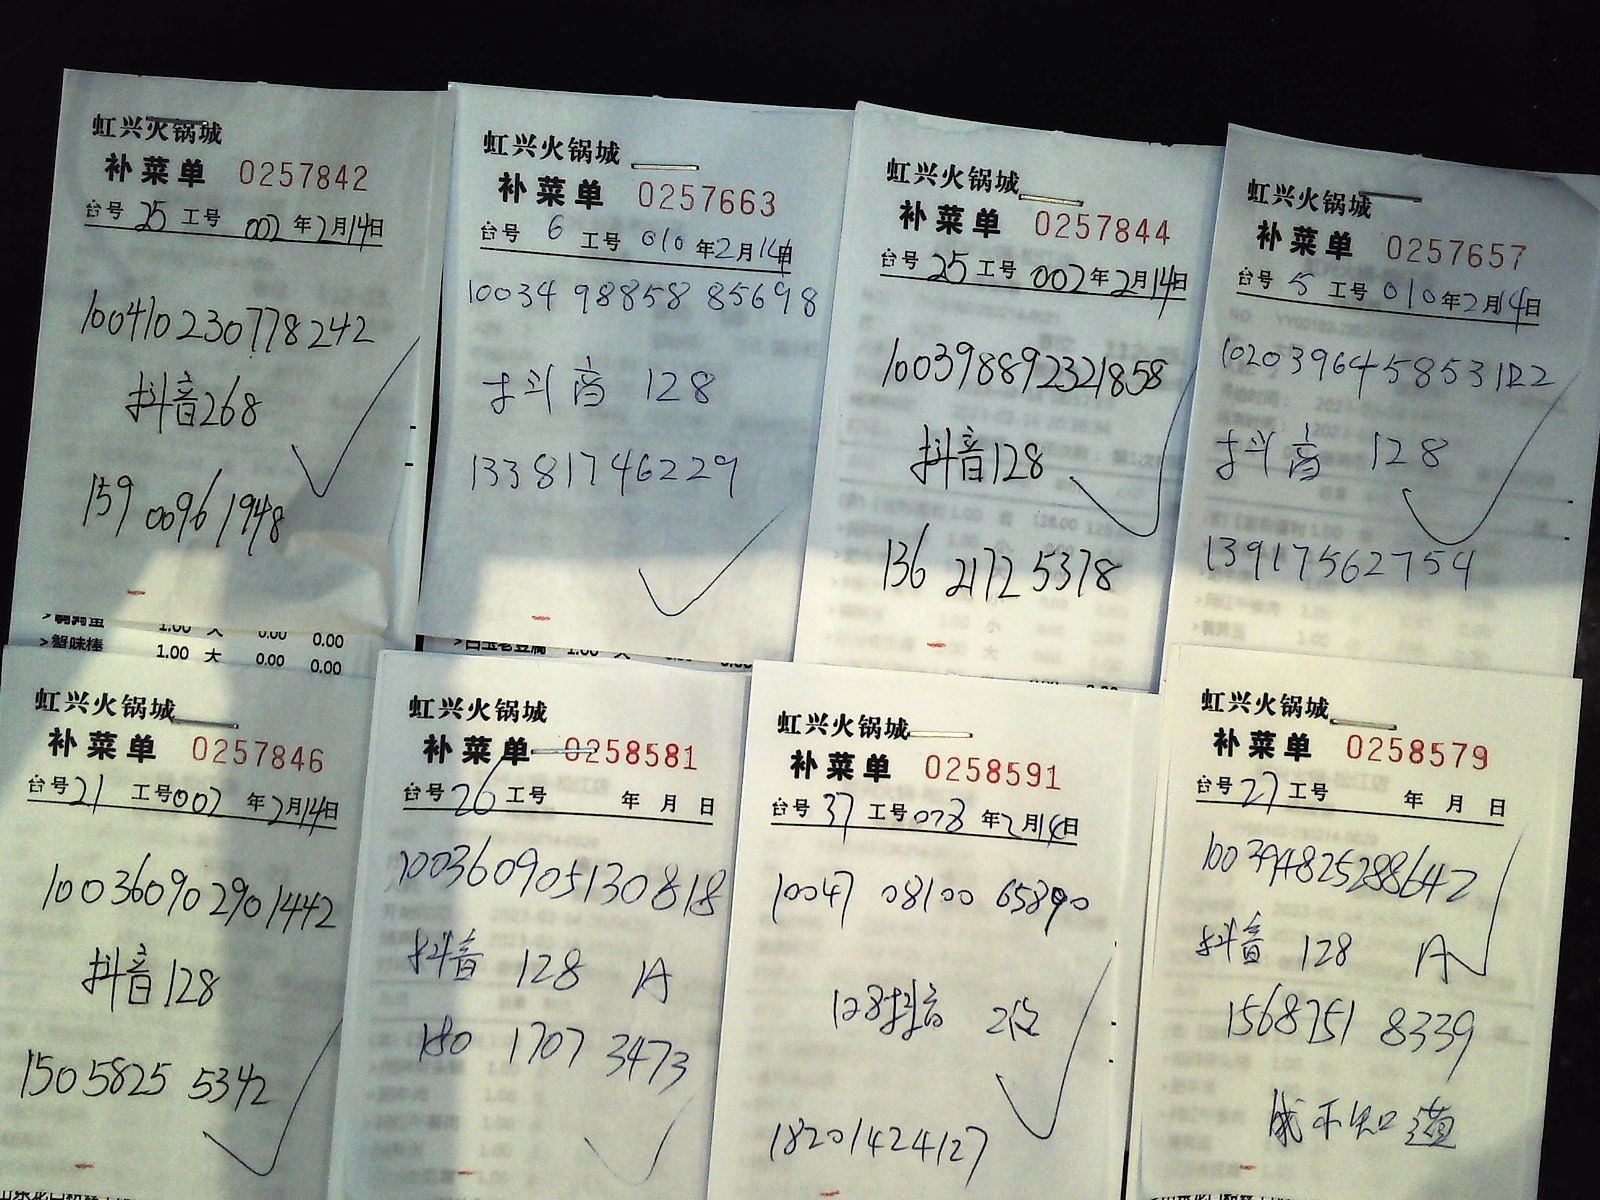 虹兴火锅城
补菜单 0257842
台号 25 工号 002 年2月14日
100410230778242
抖音268
159 0096 1948
>蟹味棒 1.00 大 0.00 0.00
虹兴火锅城
补菜单 0257663
台号 6 工号 010 年2月14日
10034 98858 85698
抖音 128
13381746229
虹兴火锅城
补菜单 0257844
台号 25 工号 002 年2月14日
100398892321858
抖音128
136 2172 5378
虹兴火锅城
补菜单 0257657
台号 5 工号 010 年2月14日
抖音 128
13917562754
虹兴火锅城
补菜单 0257846
台号 21 工号 002 年2月14日
100360902901442
抖音128
150 5825 5342
虹兴火锅城
补菜单 0258581
台号 26 工号 年 月 日
100360905130818
抖音 128 1A
180 1707 3473
虹兴火锅城
补菜单 0258591
台号 37 工号 078 年2月14日
10047 08100 65890
128抖音 2位
18201424127
虹兴火锅城
补菜单 0258579
台号 27 工号 年 月 日
100394825288642
抖音 128 1A
1568751 8339
不知道